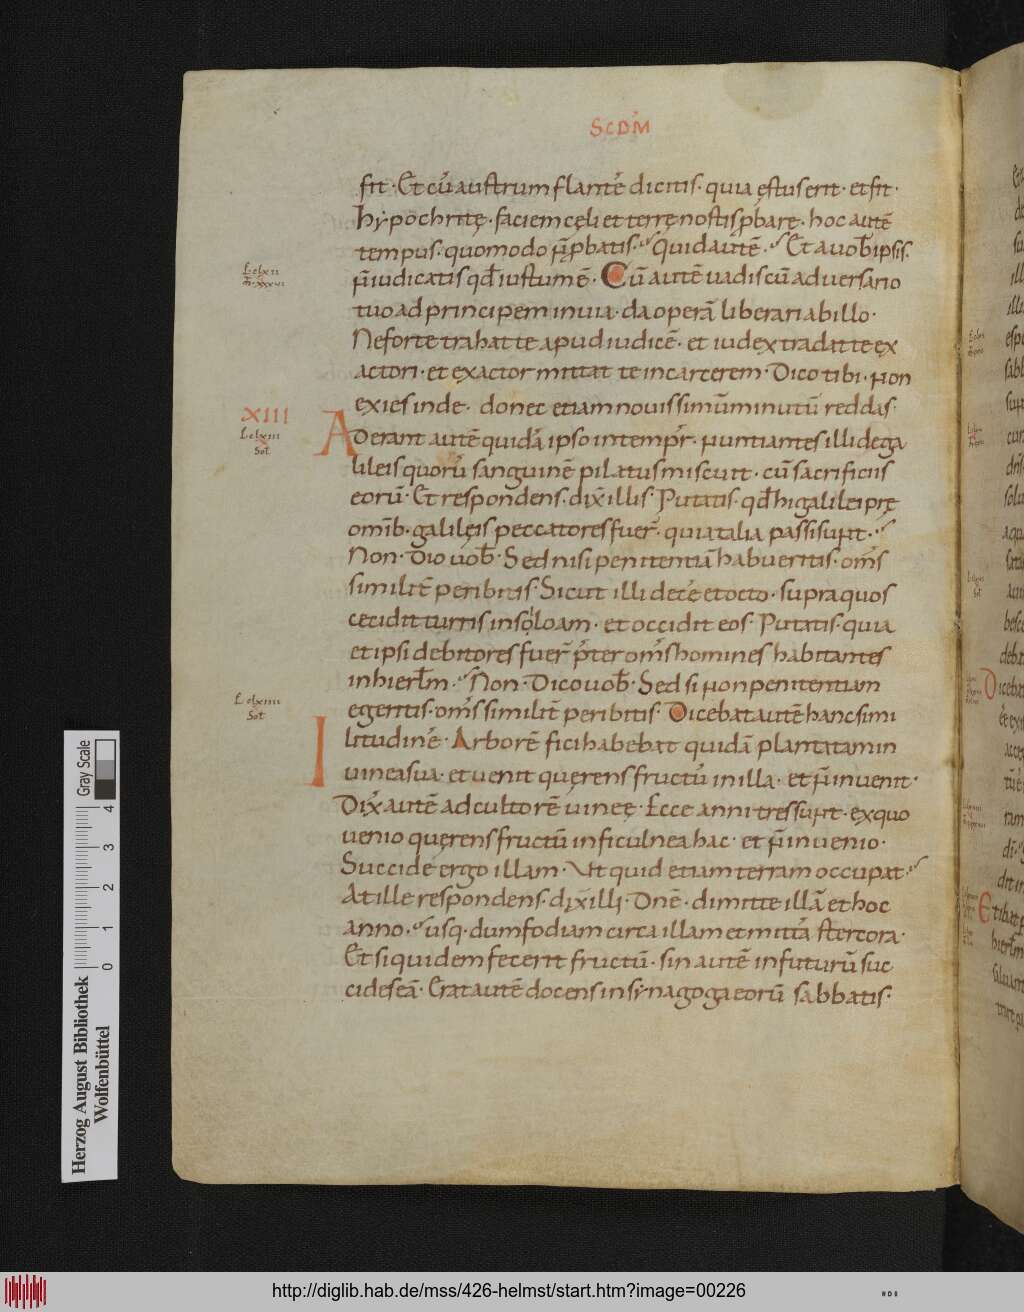 SCDM̄
fit · Et cū austrum flantē dicitis · quia ęstus erit · et fit ·
hẏpochritę · faciem cęli et terrę nostis ꝓbare · hoc autē
tempus · quomodo ñ ꝓbatis · Quid autē · Et a uob̄ ipsis ·
ñ iudicatis qđ iustum ē · Cū autē uadis cū aduersario
L clxii
m̄ xxxvi
tuo ad principem in uia · da operā liberari ab illo ·
Ne forte trahat te apud iudicē · et iudex tradat te ex
actori · et exactor mittat te in carcerem · Dico tibi · non
exies inde · donec etiam nouissimū minutū reddas ·
XIII
L clxiii
Sol
Aderant autē quidā ipso in tempr̄ · nuntiantes illi de ga
lileis quorū sanguinē pilatus miscuit · cū sacrificiis
eorū · Et respondens · dix̄ illis · Putatis · qđ hi galilei prę
omīb · galilęis peccatores fuer̄ · quia talia passi sunt ·
Non · Dico uob̄ · Sed nisi penitentiā habueritis · oms̄
similit̄ peribitis · Sicut illi decē et octo · supra quos
cecidit turris in soloam · et occidit eos · Putatis · quia
et ipsi debitores fuer̄ p̄ter oms̄ homines habitantes
in hierłm · Non · Dico uob̄ · Sed si non penitentiam
L clxiiii
Sol
egeritis · oms̄ similit̄ peribitis · Dicebat autē hanc simi
litudinē · Arborē fici habebat quidā plantatam in
uinea sua · et uenit quęrens fructū in illa · et ñ inuenit ·
Dix̄ autē ad cultorē uineę · Ecce anni tres sunt · ex quo
uenio quęrens fructū in ficulnea hac · et ñ inuenio ·
Succide ergo illam · Vt quid etiam terram occupat ·
At ille respondens · dix̄ illi · Dnē · dimitte illā et hoc
anno · usq · dum fodiam circa illam et mittā stercora ·
Et siquidem fecerit fructū · sin autē in futurū suc
cides eā · Erat autē docens in sẏnagoga eorū sabbatis ·
Gray Scale
0 1 2 3 4
Herzog August Bibliothek
Wolfenbüttel
http://diglib.hab.de/mss/426-helmst/start.htm?image=00226